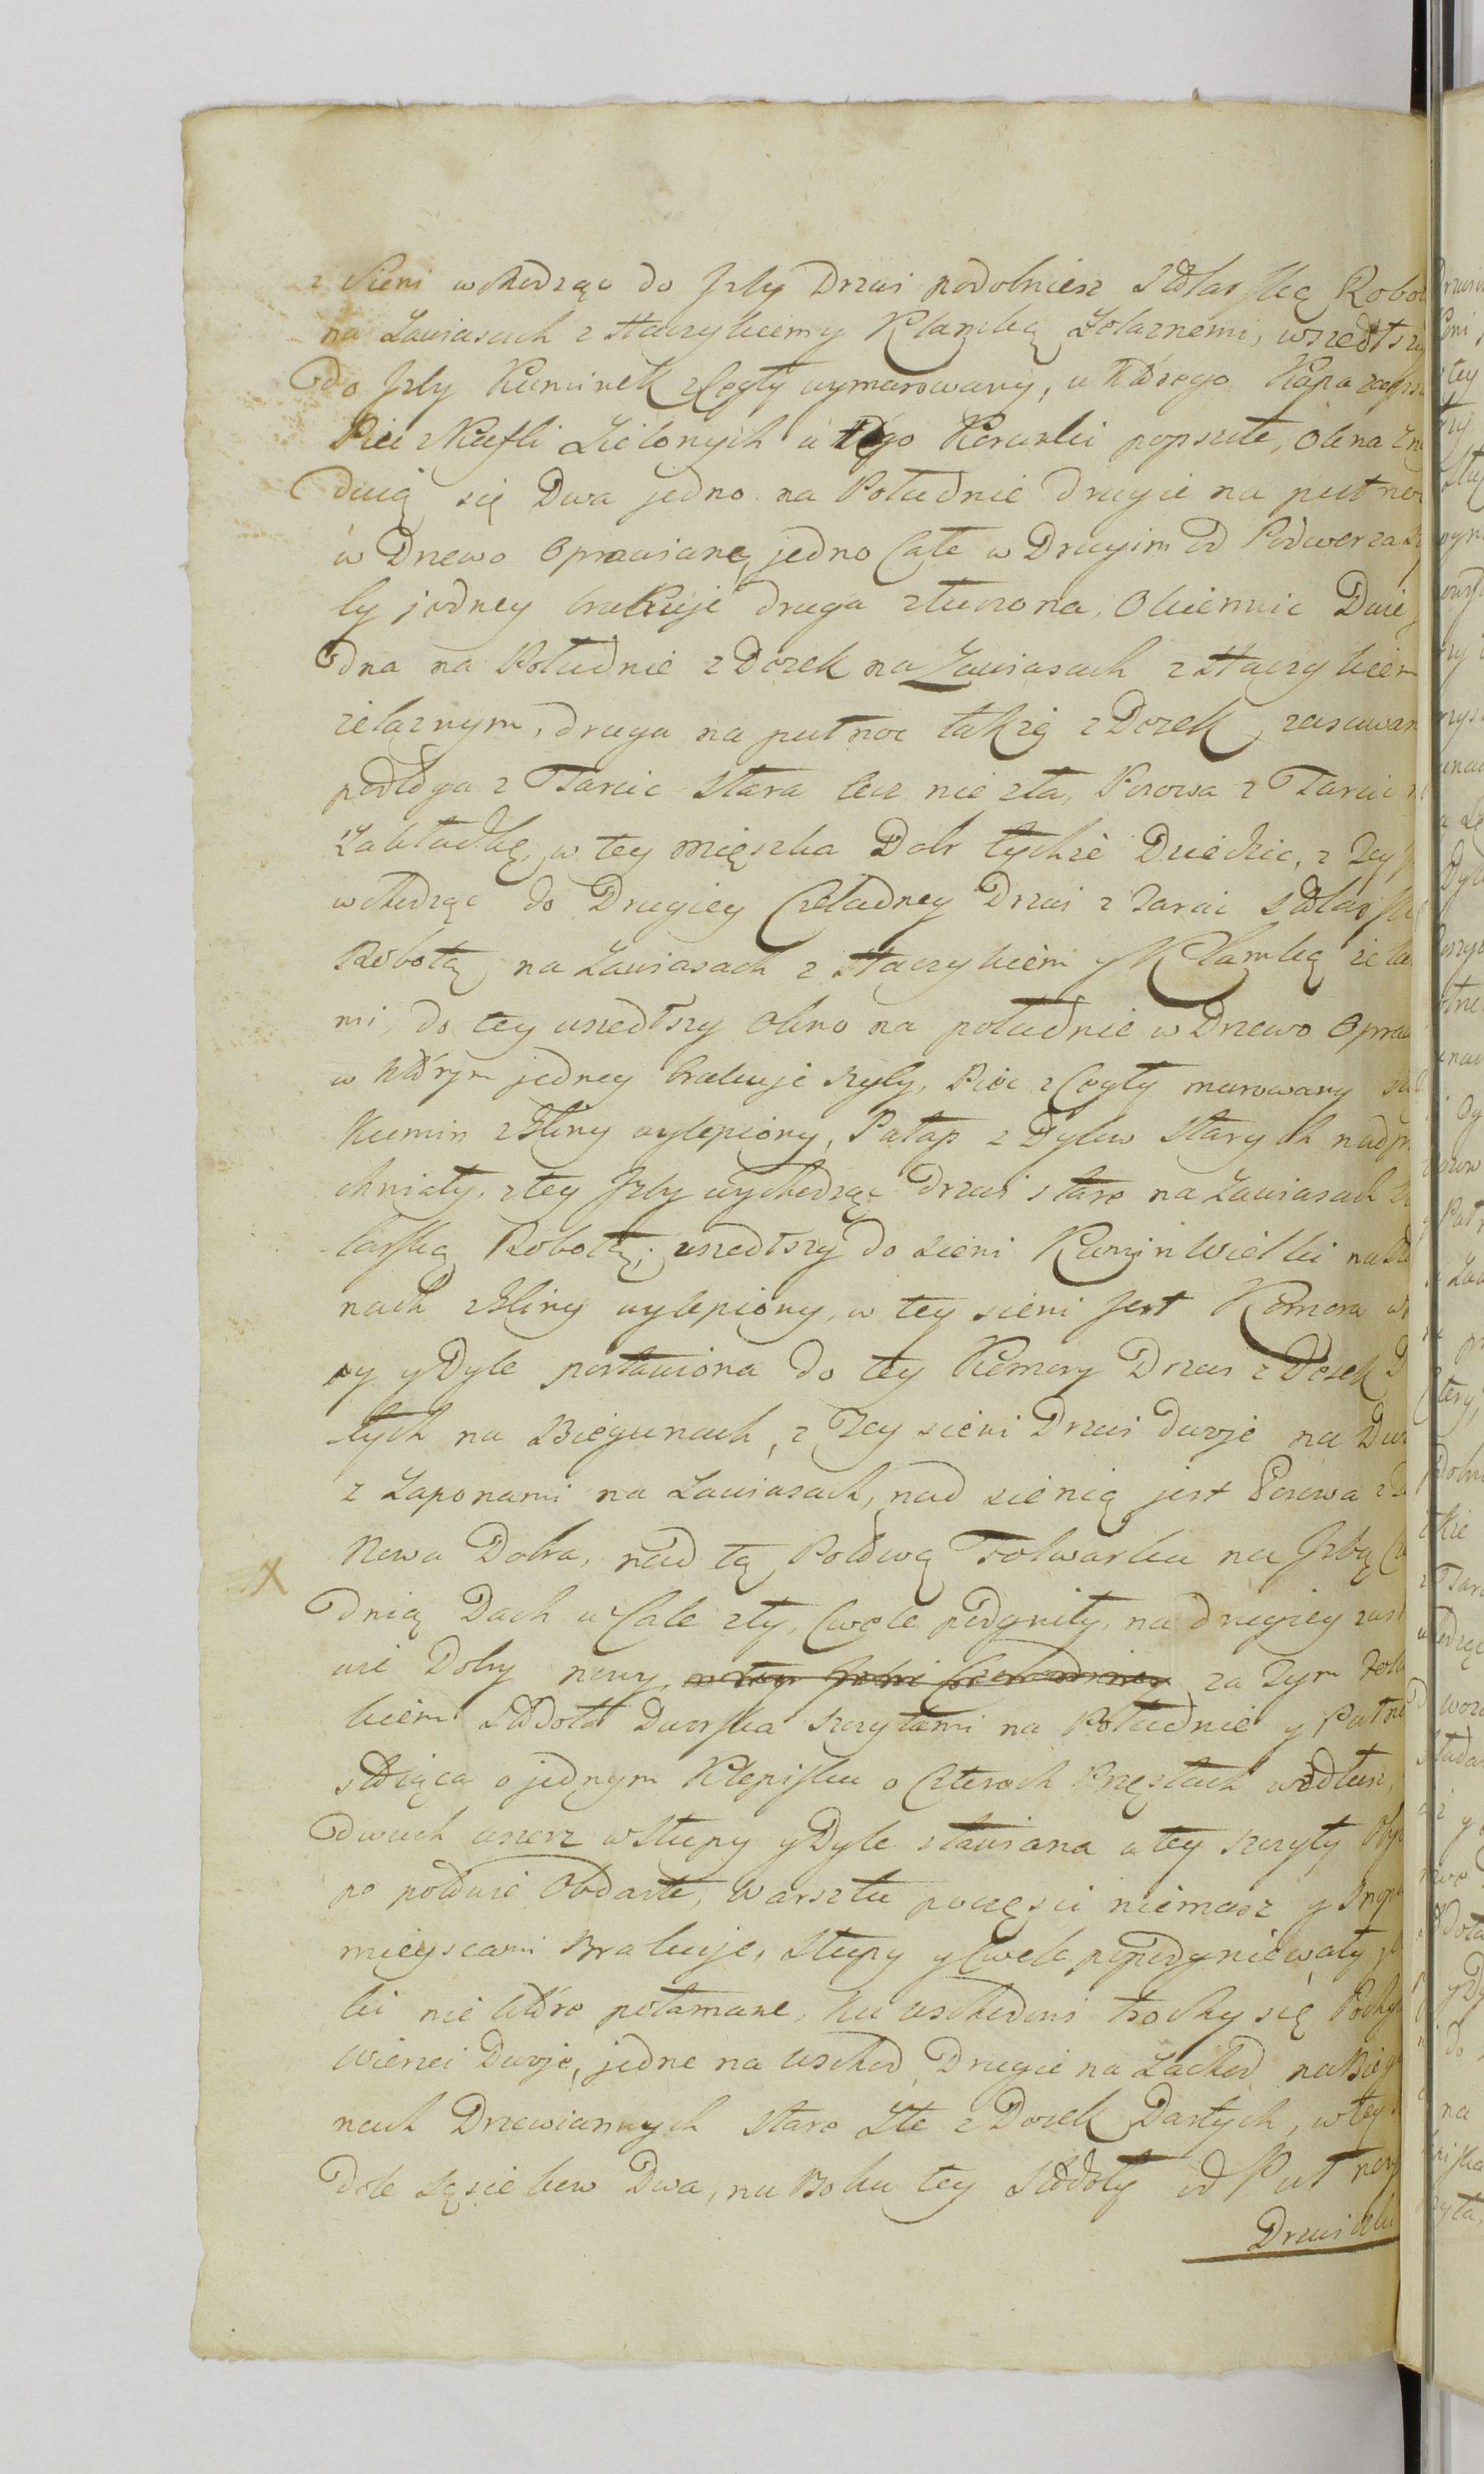 z Sieni wchodząc do Jzby Drzwi podobniesz Stolarską Robo
na Zawiasach z Haczykiem y Klamką Żelaznemi, wszedłszy
do Jzby Kuminek z Cegły wymurowany, u którego Kapa
Piec z Kafli Zielonych u tego Korunki popsute, Okna zny
duią się Dwa jedno na Południe drugie na pułnoc
w Drzewo Oprawiane, jedno Całe w Drugim od Podworza
by jedney brakuje druga złuczona, Okiennic Dwie
dna na Południe z Dozek na Zawiasach z Haczykiem
żelaznym, druga na pułnoc także z Dozek zasuwan
podłoga z Tarcic stara lecz nie zła, Pozowa z Tarcic
Zakładkę, w tey mięszka Dobr tychże Dziedzic, z Tey
wchodząc do Drugiey Czeladney Drzwi z Tarcic Stolarską
Robotą na Zawiasach z Haczykiem y Klamką żela
mi, do tey wszedłszy Okno na południe w Drzewo Opra
w którym jedney brakuje szyby, Piec z Cegły murowany
Kumin z Gliny wylepiony, Pałap z Dylow Starych nadpr
chniały, z tey Jzby wychodząc Drzwi stare na Zawiasach
larską Robotą, wszedłszy do sieni Kumin Wielki na
nach z Gliny wylepiony, w tey sieni Jest Komora w
py y Dyle postawiona do tey Komory Drzwi z Dosek D
tych na Biegunach, z Tey sieni Drzwi Dwoje na Dwo
z Zaponami na Zawiasach, nad sienią jest Posowa z
Nowa Dobra, nad tą Połową Folwarku na Jzbą
X
dnią Dach w Cale zły, Cwele podgniły, na drugiey
wie Dobry nowy, za Tym
kiem Stodoła Dworska szczytami na Południe y Pułno
stoiąca o jednym Klepisku o Czterech Przęsłach wzdłusz,
dwuch wszerz w Słupy y Dyle stawiana u tey szczyty
po połowie Obdarte, Warsztu poczęsci niemasz y
mieyscami Brakuje, Słupy y Cwele popodgniewały
ki nie które połamane, ku wschodowi trochy się Pochy
Wierzei Dwoje, jedne na wschod Drugie na Zachod na Bieg
nach Drzewiannych stare złe z Dosek Dartych, w tey
dole Sąsiekow Dwa, na Boku tey Stodoły od Pułnocy
Drzwiczki